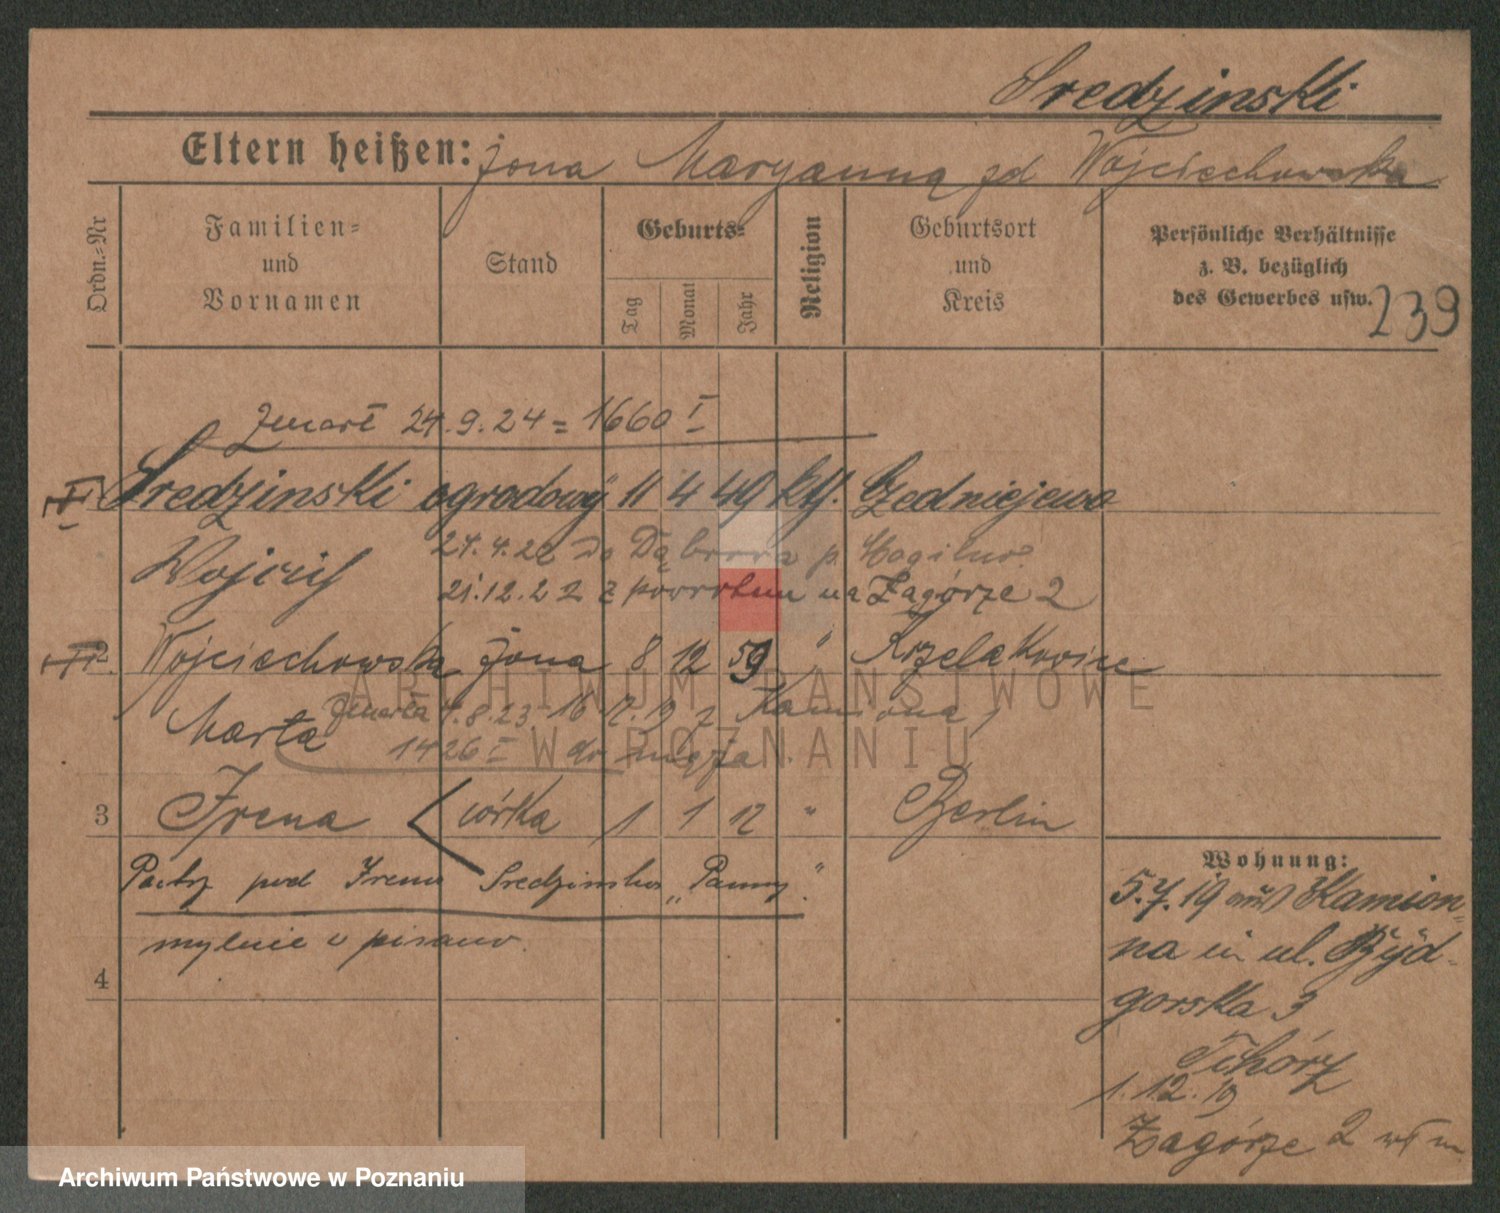 Sredzinski
Eltern heißen: żona Maryanna zd Wojciechowska
Ordn.=Nr
Familien=
und
Vornamen
Stand
Geburts=
Tag
Monat
Jahr
Religion
Geburtsort
und
Kreis
Persönliche Verhältnisse
z. B. bezüglich
des Gewerbes usw.
239
Zmarł 24.9.24 = 1660 I
Sredzinski ogrodowy 11 4 49 ktl. Czedniejewo
Wojcich 24.4.22 do Dąbrowa p. Mogilno
21.12.22 z powrotem na Zagórze 2
2 Wojciechowska żona 8 12 59 " Krzelakowice
Marta Zmarła 4.8.23 16 12.19 z Kamiona
1426 I do męża.
3 Irena córka 1 1 12 " Berlin
Patrz pod Irena Sredzinska „Panny"
mylnie pisano.
4
Wohnung:
5.7.19 Kamion-
na ul. Byd-
gorska 3
Tchórz
1.12.19
Zagórze 2
ARCHIWUM PAŃSTWOWE
W POZNANIU
Archiwum Państwowe w Poznaniu